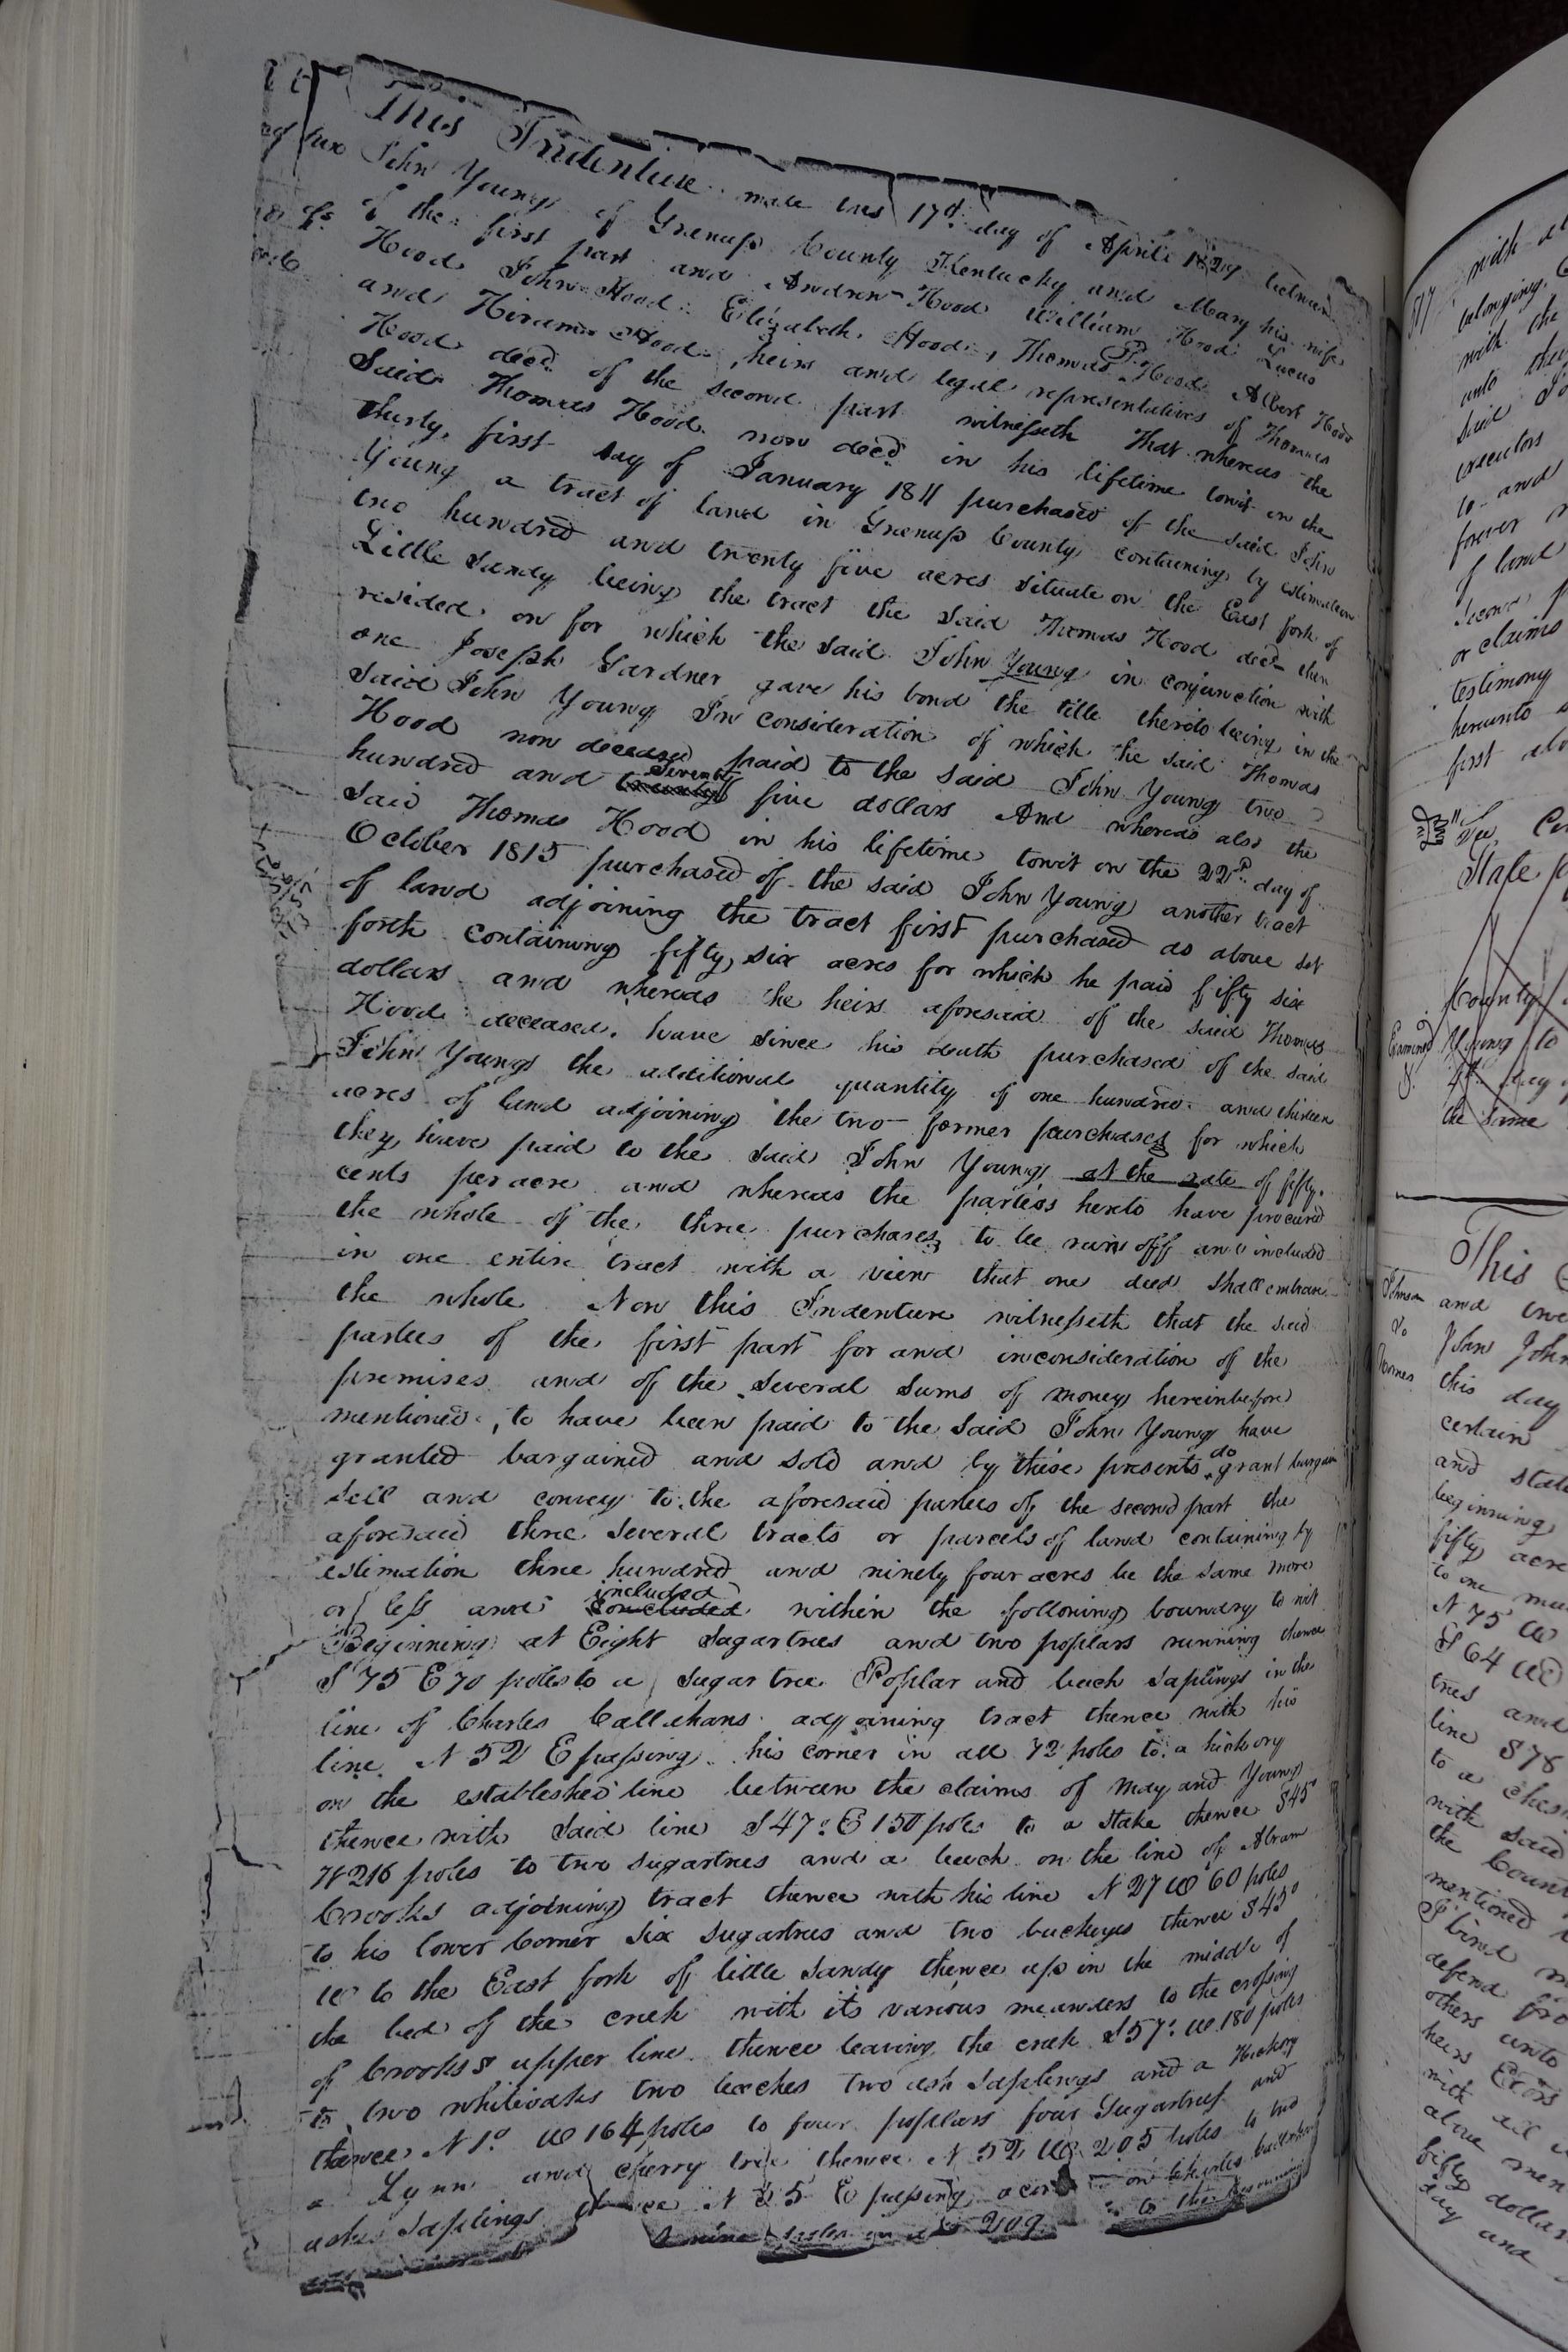 This Indenture made this 17d. day of April 1829 between
John Young of Greenup County Kentucky and Mary his wife
of the first part and Andrew Hood William Hood Lucus
Hood John Hood Elizabeth Hood, Thomas P. Hood Albert Hood
and Hiram Hood heirs and legal representatives of Thomas
Hood decd. of the second part witnesseth That whereas the
Said Thomas Hood now decd in his lifetime towit on the
thirty first day of January 1811 purchased of the said John
Young a tract of land in Greenup County containing by estimation
two hundred and twenty five acres situate on the East fork of
Little Sandy being the tract the said Thomas Hood decd then
resided on for which the said John Young in conjunction with
one Joseph Gardner gave his bond the title thereto being in the
said John Young In consideration of which the said Thomas
Hood now deceased paid to the said John Young two
hundred and seventy five dollars And whereas also the
said Thomas Hood in his lifetime towit on the 22d. day of
October 1815 purchased of the said John Young another tract
of land adjoining the tract first purchased as above set
forth containing fifty six acres for which he paid fifty six
dollars and whereas the heirs aforesaid of the said Thomas
Hood deceased. have since his death purchased of the said
John Young the additional quantity of one hundred and thirteen
acres of land adjoining the two former purchases for which
they have paid to the said John Young at the rate of fifty
cents per acre and whereas the parties hereto have procured
the whole of the three purchases to be run off and included
in one entire tract with a view that one deed shall embrace
the whole Now this Indenture witnesseth that the said
parties of the first part for and inconsideration of the
premises and of the several sums of money hereinbefore
mentioned, to have been paid to the said John Young have
granted bargained and sold and by these presents do grant bargain
sell and convey to the aforesaid parties of the second part the
aforesaid three several tracts or parcels of land containing by
estimation three hundred and ninety four acres be the same more
or less and included within the following boundry to wit
Beginning at Eight Sugartrees and two poplars running thence
S 75 E 70 poles to a Sugar tree Poplar and beech saplings in the
line of Charles Callihans adjoining tract thence with his
line N 52 E passing his corner in all 72 poles to a hickory
on the established line between the claims of May and Young
thence with said line S 47° E 150 poles to a stake thence S 45°
W 216 poles to two sugartrees and a beech on the line of Abram
Crooks adjoining tract thence with his line N 27 W 60 poles
to his lower Corner six sugartrees and two buckeyes thence S 45°
W to the East fork of little Sandy thence up in the middle of
the bed of the creek with its various meanders to the crossing
of Crooks's upper line thence leaving the creek S 57° W 180 poles
to two whiteoaks two beeches two ash saplings and a Hickory
thence N 1° W 164 poles to four poplars four Sugartrees and
a Lynn and cherry tree thence N 52 W 205 poles to two
ash saplings thence N 35 E passing a corner on Charles
nine poles in 209 to the beginning
517
with
belonging
with the
unto the
said
executors
to and
forever
of land
second
or claims
testimony
hereunto
first
State
County
Examined
Young to
4th day of
the same
This
and
John John
this day
certain
and state
beginning
fifty acre
to one
N 75 W
S 64 W
trees and
line S 78
to a
with said
the County
mentioned
I bind
defend
others unto
heirs Exors
with all
above
fifty dollars
day and